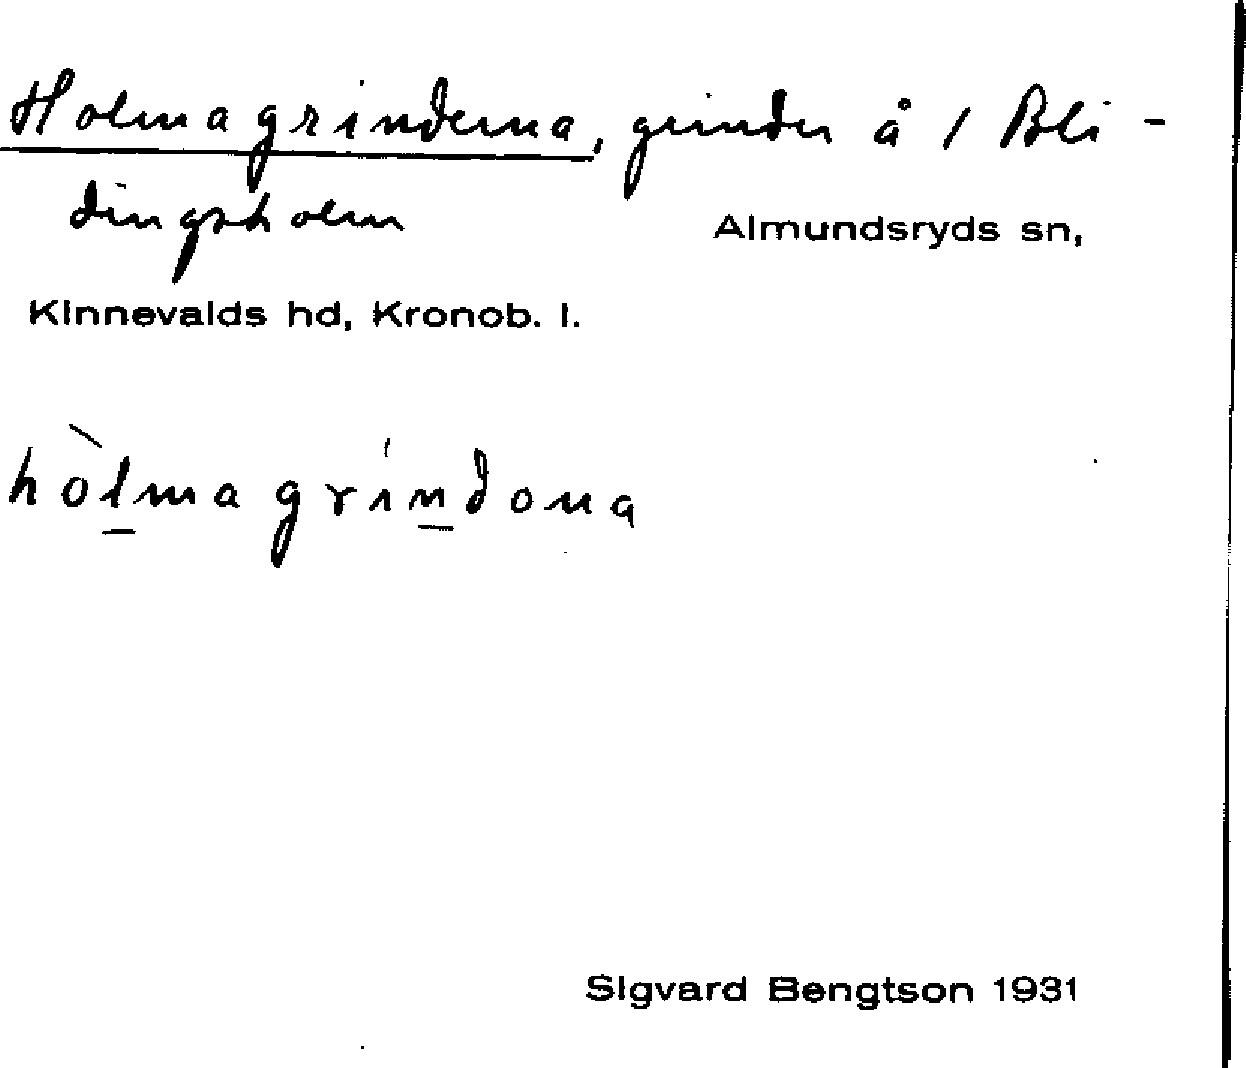 Holmagrinderna, grinder å 1 Bli-
dingsholm
Almundsryds sn,
Kinnevalds hd, Kronob. l.
hòlmagrindona
Sigvard Bengtson 1931